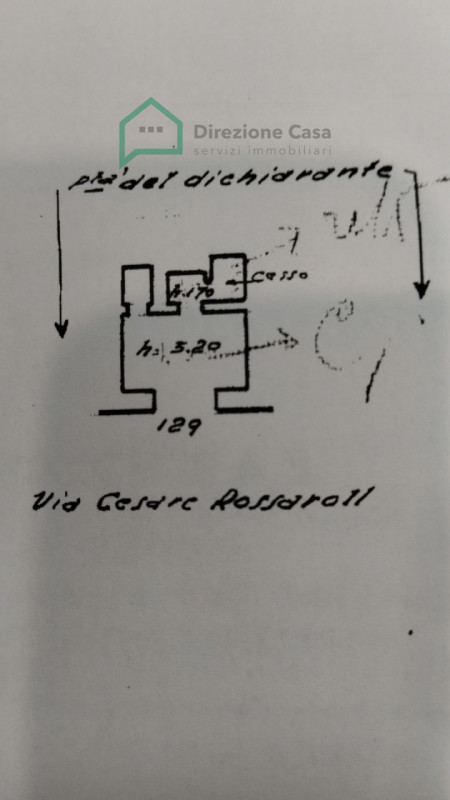 Direzione Casa
servizi immobiliari
ptà del dichiarante
casso
h. 1.70
h= 3.20
129
Via Cesare Rossaroll